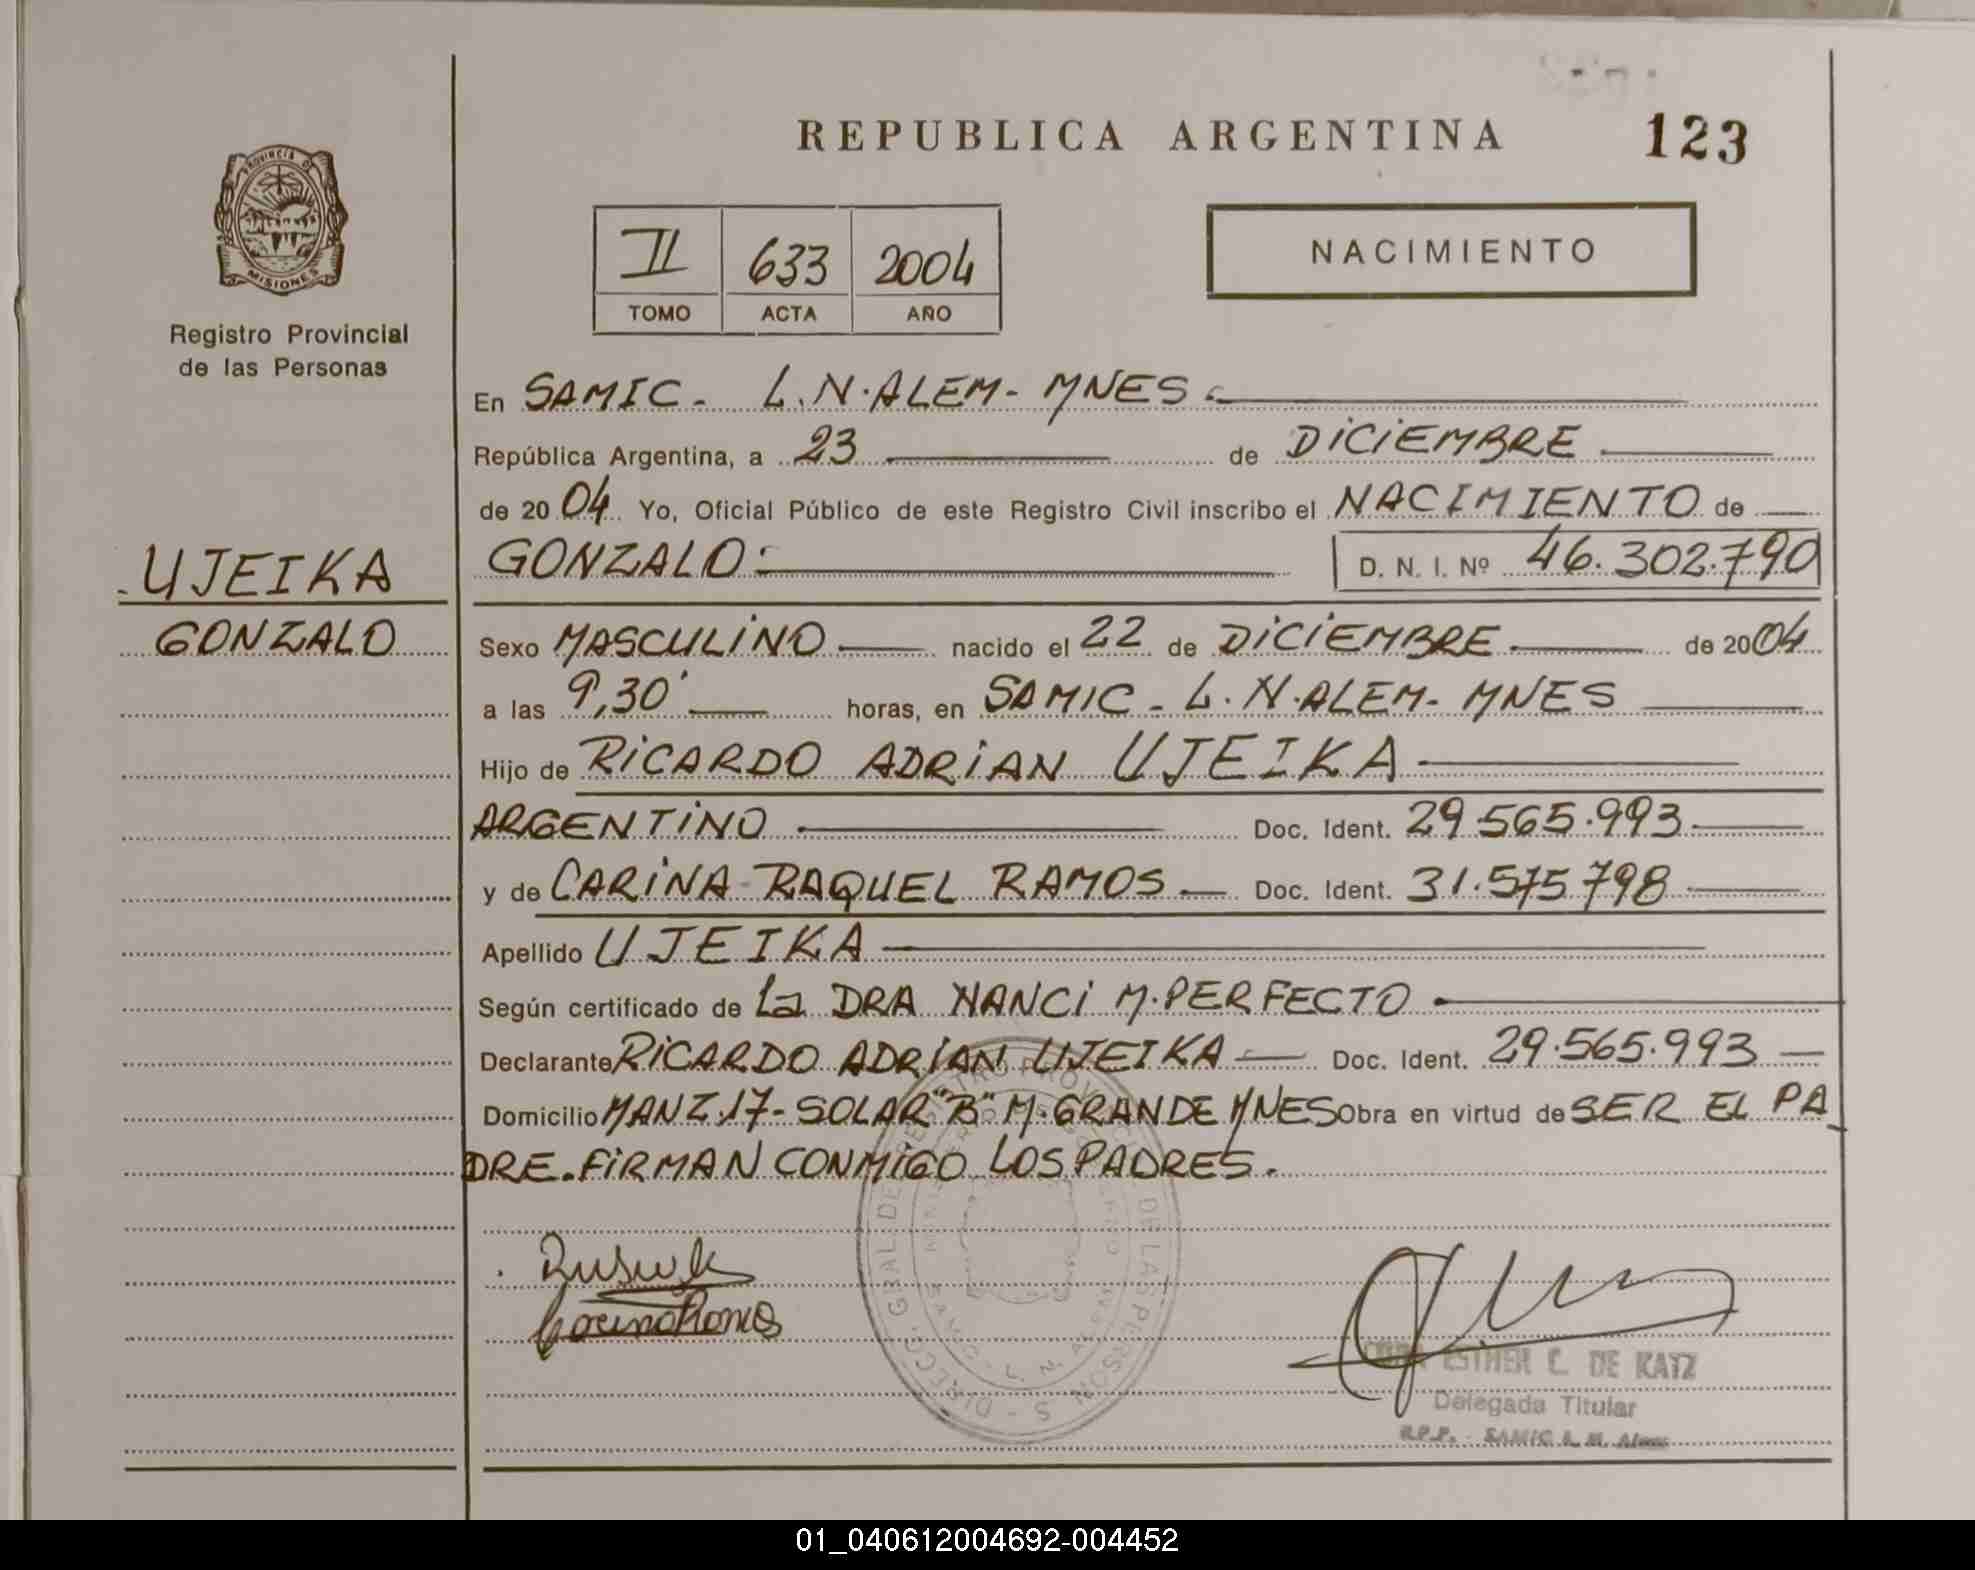 REPUBLICA ARGENTINA 123
PROVINCIA DE
MISIONES
Registro Provincial
de las Personas
II 633 2004
TOMO ACTA AÑO
NACIMIENTO
En SAMIC - L.N.ALEM - MNES
República Argentina, a 23 de DICIEMBRE
de 2004 Yo, Oficial Público de este Registro Civil inscribo el NACIMIENTO de
UJEIKA
GONZALO
GONZALO: D. N. I. Nº 46.302.790
Sexo MASCULINO nacido el 22 de DICIEMBRE de 2004
a las 9,30' horas, en SAMIC - L.N.ALEM - MNES
Hijo de RICARDO ADRIAN UJEIKA
ARGENTINO Doc. Ident. 29.565.993
y de CARINA RAQUEL RAMOS Doc. Ident. 31.575.798
Apellido UJEIKA
Según certificado de La DRA NANCI M. PERFECTO
Declarante RICARDO ADRIAN UJEIKA Doc. Ident. 29.565.993
Domicilio MANZ.17- SOLAR "B" M. GRANDE MNES Obra en virtud de SER EL PA
DRE. FIRMAN CONMIGO LOS PADRES.
ESTHER C. DE KATZ
Delegada Titular
R.P.P. SAMIC L. N. Alem
01_040612004692-004452